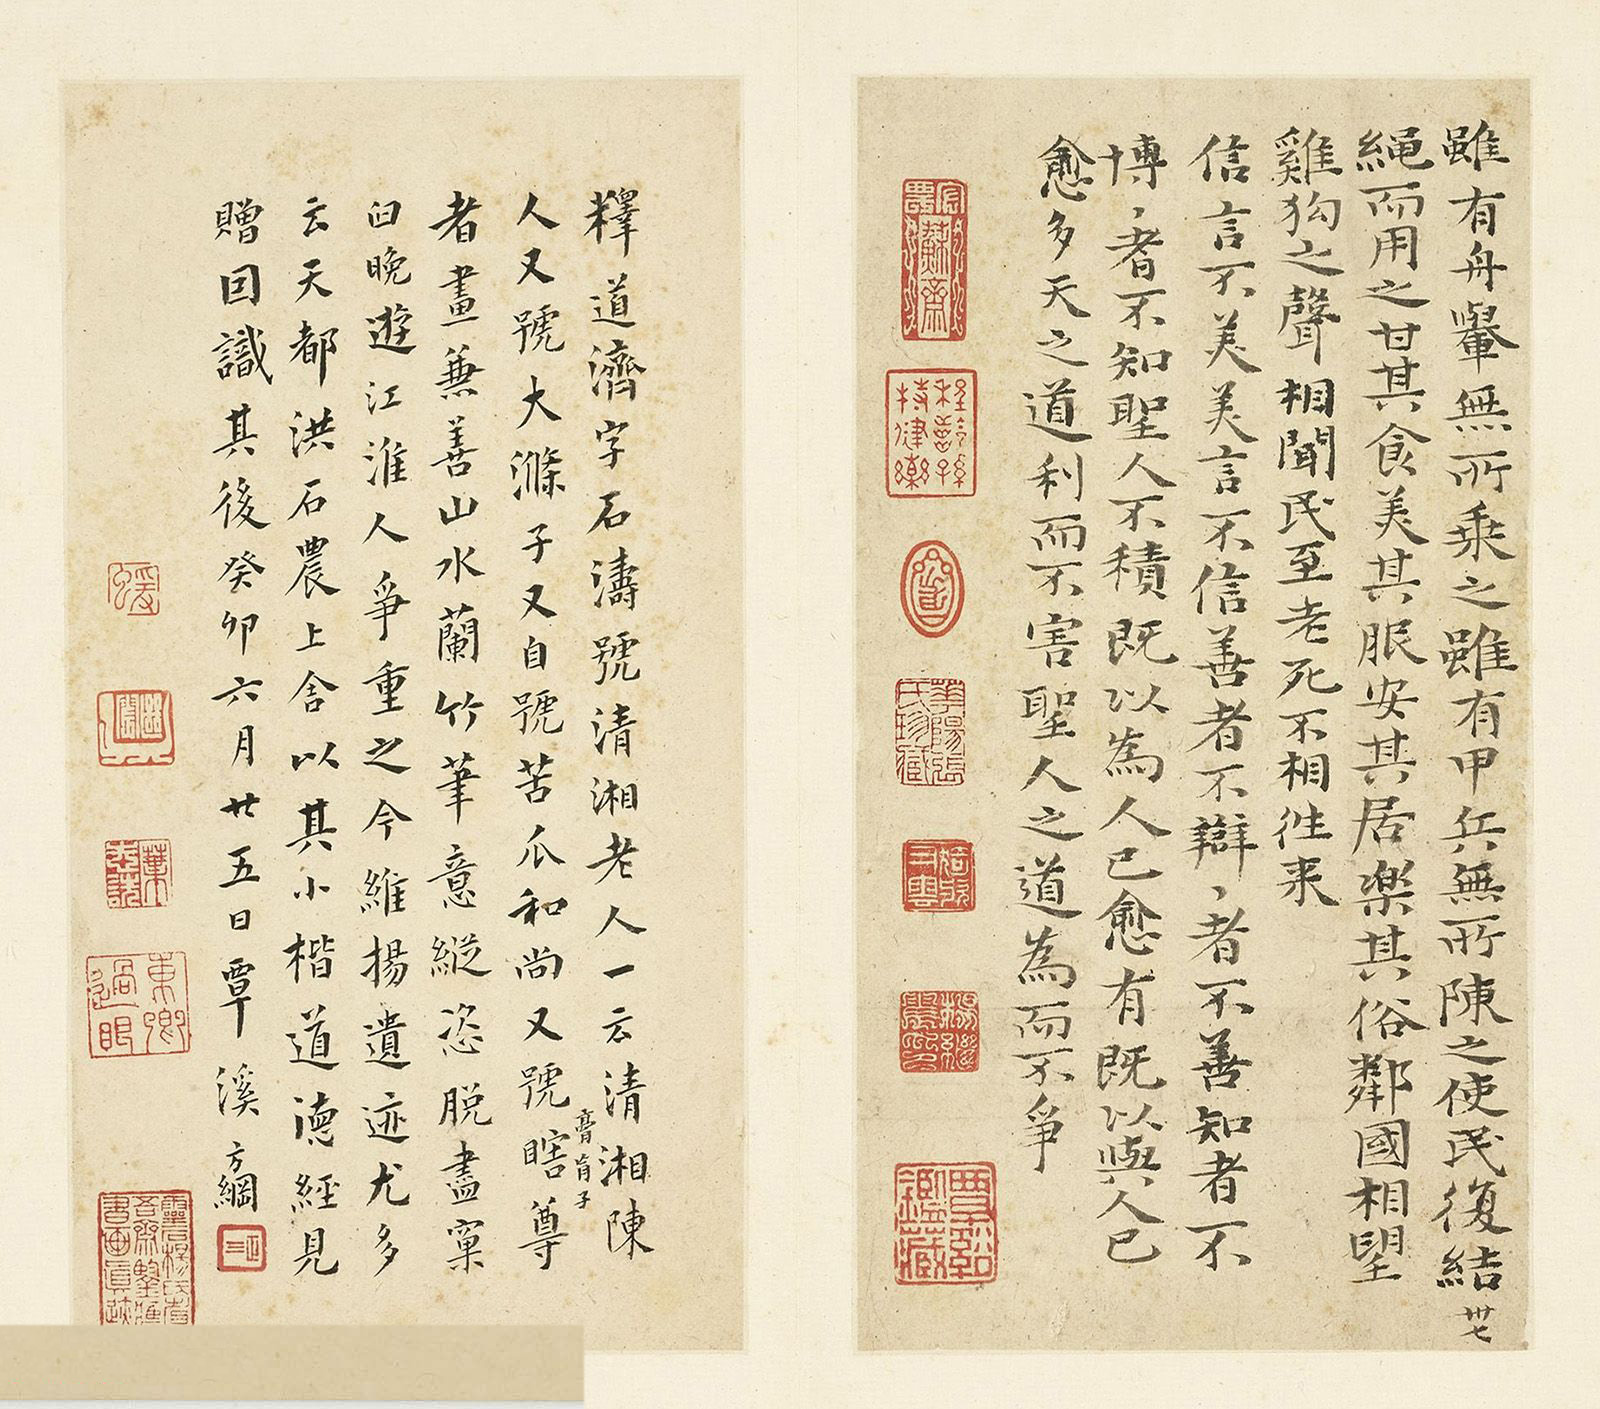 雖有舟轝無所乗之雖有甲兵無所陳之使民復結
卅七
繩而用之甘其食美其服安其居樂其俗鄰國相望
雞狗之聲相聞民至老死不相徃来
信言不美美言不信善者不辯、者不善知者不
博、者不知聖人不積既以為人已愈有既以與人已
愈多天之道利而不害聖人之道為而不爭
蘇齋
華陽張氏珍藏
釋道濟字石濤號清湘老人一云清湘陳
人又號大滌子又自號苦瓜和尚又號瞎尊
膏肓子
者畫兼善山水蘭竹筆意縱恣脱盡窠
臼晚遊江淮人爭重之今維揚遺迹尤多
云天都洪石農上舍以其小楷道德經見
贈回識其後癸卯六月廿五日覃溪方綱
東卿過眼